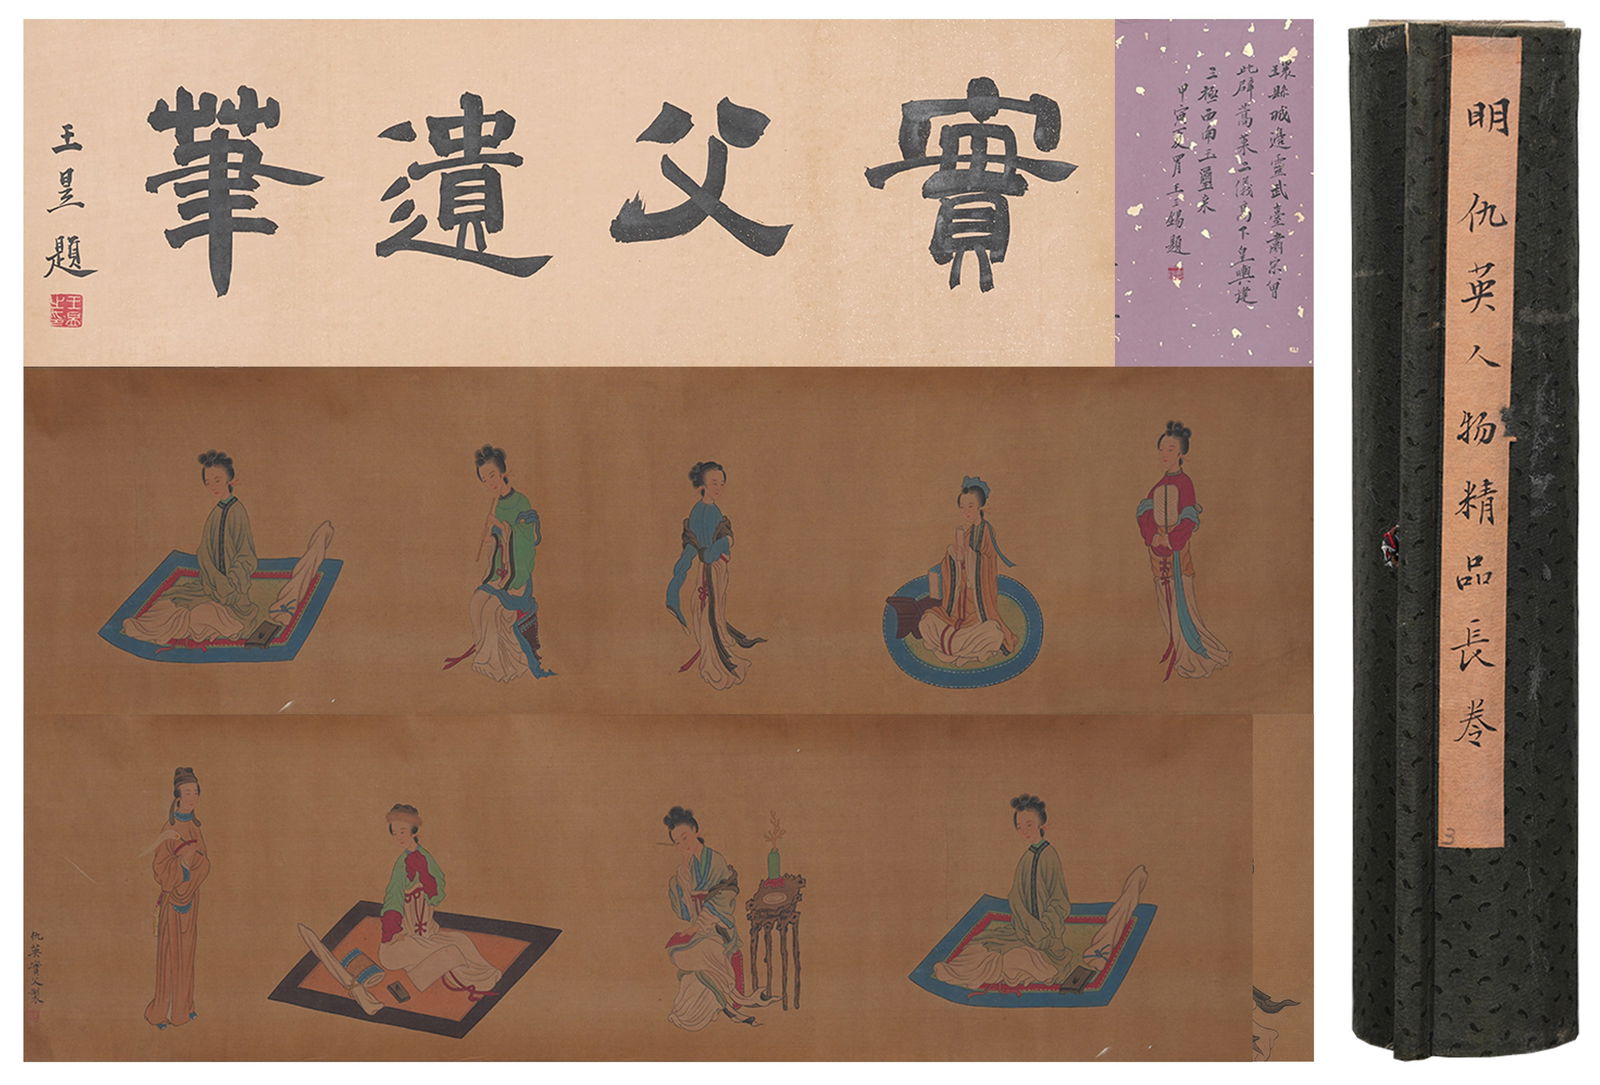 實父遺筆
王昱題
王昱之印
環縣城邊靈武臺肅宗曾
此辟蒿萊二儀高下皇輿建
三極西南玉璽來
甲寅夏月王 錫題
仇英實父製
明仇英人物精品長卷
3